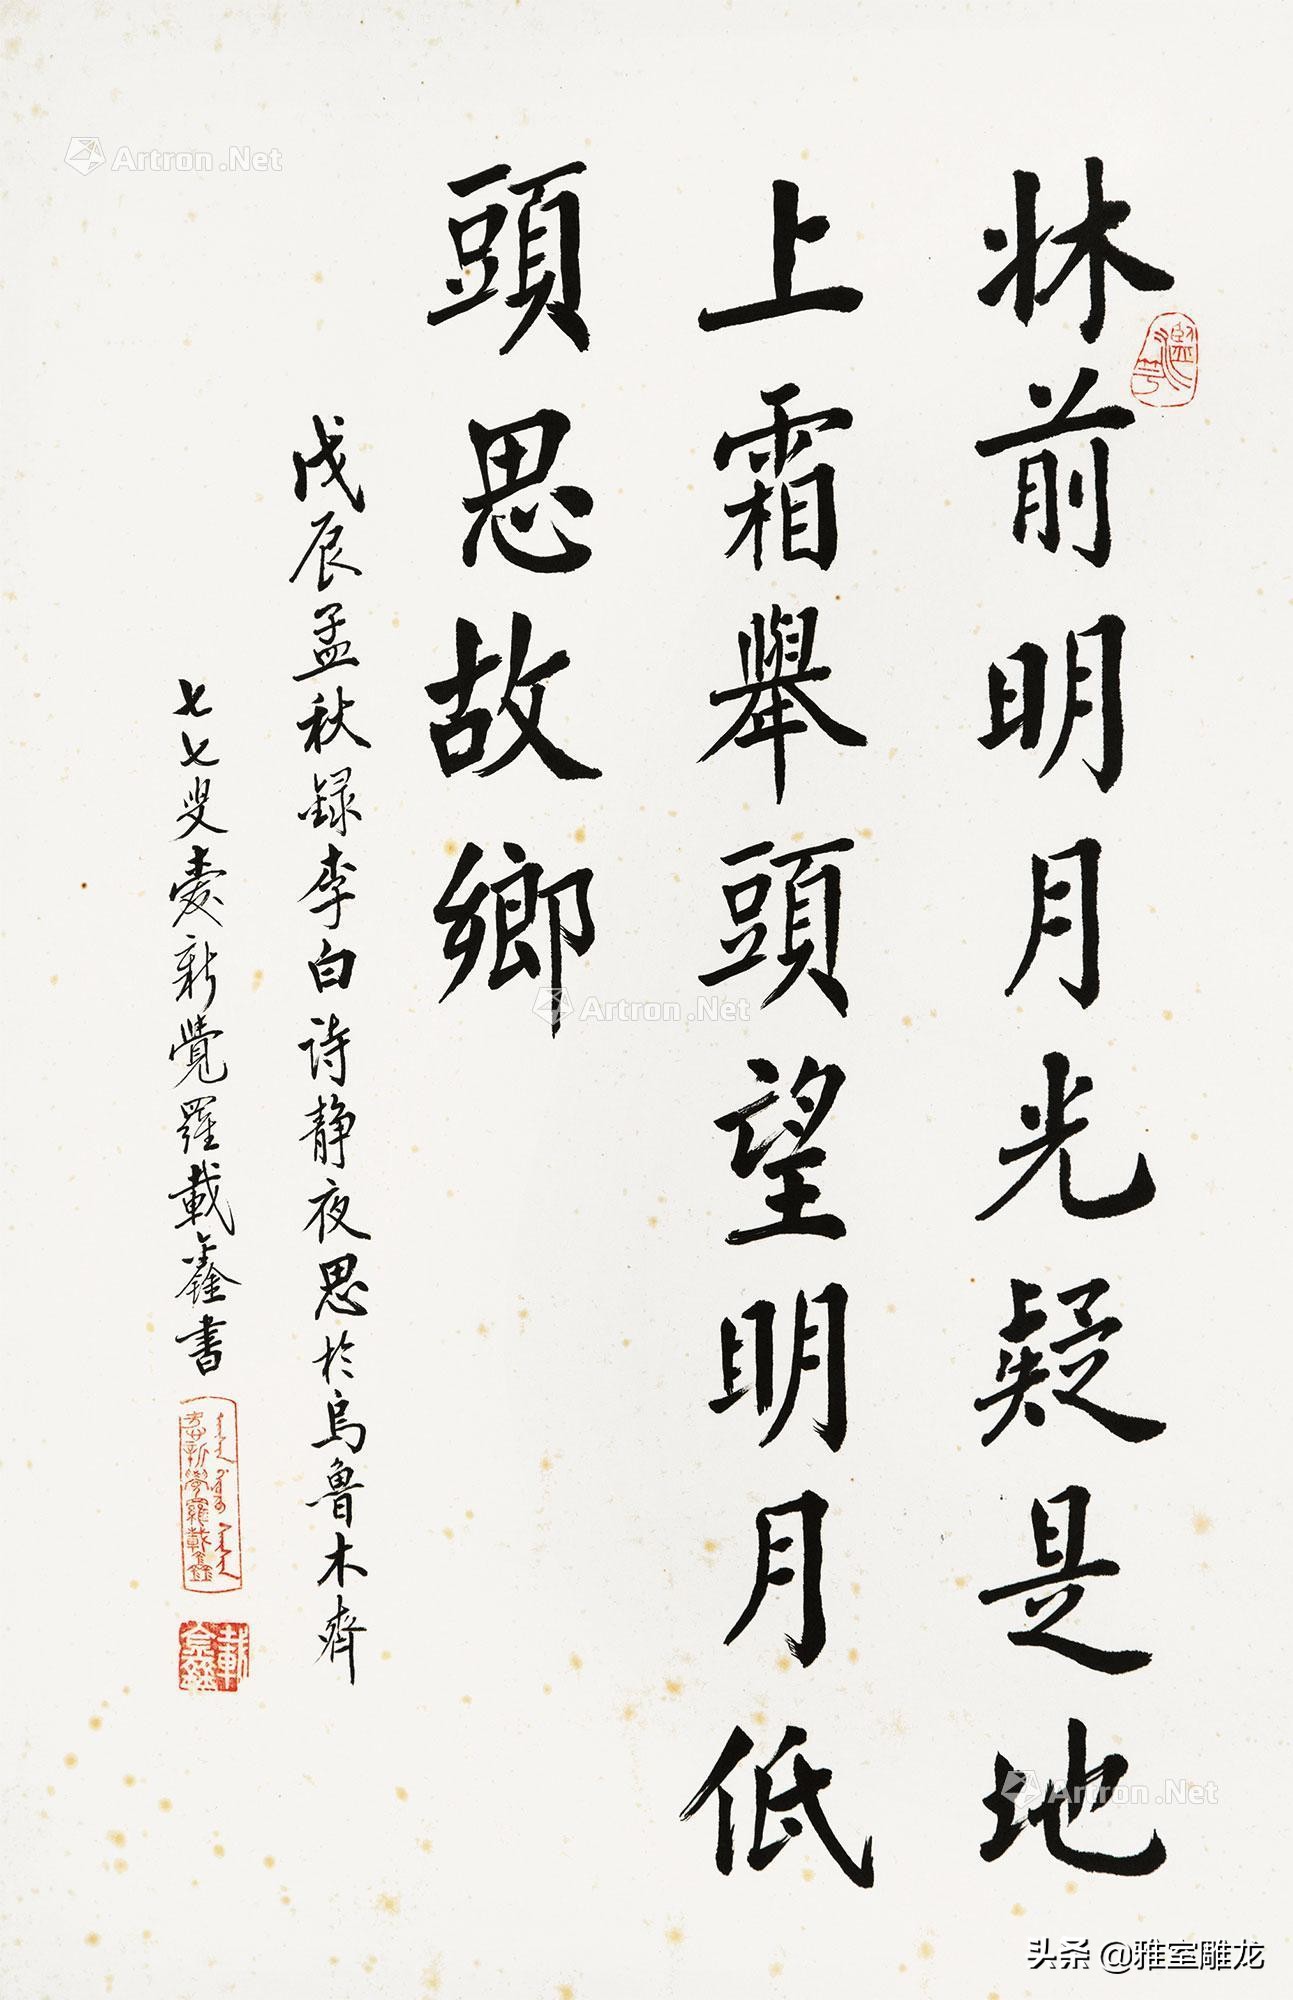 牀前明月光疑是地
上霜舉頭望明月低
頭思故鄉
戊辰孟秋録李白诗静夜思於烏魯木齊
七七叟愛新覺羅載鑫書
愛新覺羅載鑫
載鑫
Artron.Net
Artron.Net
Artron.Net
头条 @雅室雕龙